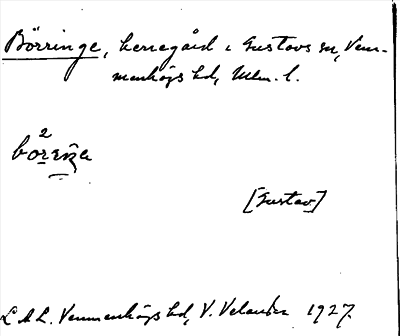 Börringe, herregård i Gustavs sn, Vem-
menhögs hd, Mlm. l.
[Gustav]
L A L. Vemmenhögs hd, V. Velander 1927.